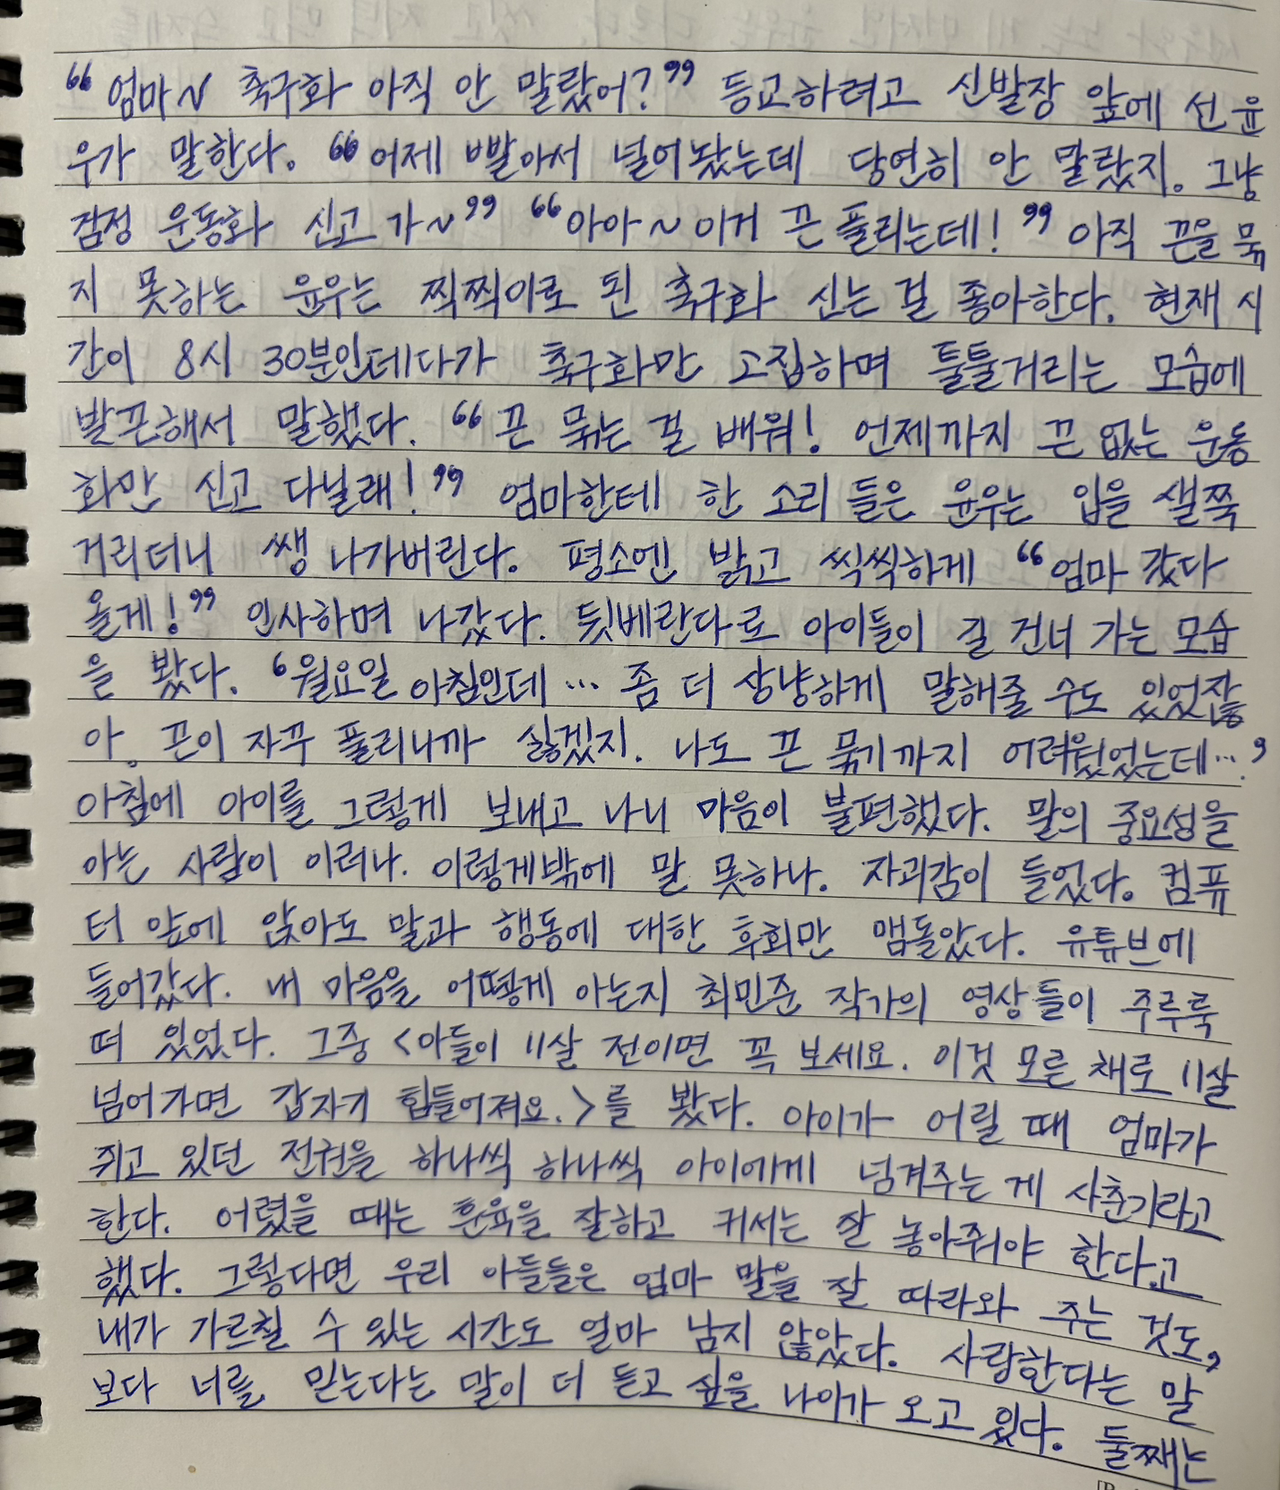 “엄마~ 축구화 아직 안 말랐어?” 등교하려고 신발장 앞에 선 윤
우가 말한다. “어제 빨아서 널어놨는데 당연히 안 말랐지. 그냥
검정 운동화 신고 가~” “아아~ 이거 끈 풀리는데!” 아직 끈을 묶
지 못하는 윤우는 찍찍이로 된 축구화 신는 걸 좋아한다. 현재 시
간이 8시 30분인데다가 축구화만 고집하며 툴툴거리는 모습에
발끈해서 말했다. “끈 묶는 걸 배워! 언제까지 끈 없는 운동
화만 신고 다닐래!” 엄마한테 한 소리 들은 윤우는 입을 샐쭉
거리더니 쌩 나가버린다. 평소엔 밝고 씩씩하게 “엄마 갔다
올게!” 인사하며 나갔다. 뒷베란다로 아이들이 길 건너 가는 모습
을 봤다. ‘월요일 아침인데… 좀 더 상냥하게 말해줄 수도 있었잖
아. 끈이 자꾸 풀리니까 싫겠지. 나도 끈 묶기까지 어려웠었는데….’
아침에 아이를 그렇게 보내고 나니 마음이 불편했다. 말의 중요성을
아는 사람이 이러나. 이렇게밖에 말 못하나. 자괴감이 들었다. 컴퓨
터 앞에 앉아도 말과 행동에 대한 후회만 맴돌았다. 유튜브에
들어갔다. 내 마음을 어떻게 아는지 최민준 작가의 영상들이 주루룩
떠 있었다. 그중 <아들이 11살 전이면 꼭 보세요. 이것 모른 채로 11살
넘어가면 갑자기 힘들어져요.>를 봤다. 아이가 어릴 때 엄마가
쥐고 있던 전권을 하나씩 하나씩 아이에게 넘겨주는 게 사춘기라고
한다. 어렸을 때는 훈육을 잘하고 커서는 잘 놓아줘야 한다고
했다. 그렇다면 우리 아들들은 엄마 말을 잘 따라와 주는 것도,
내가 가르칠 수 있는 시간도 얼마 남지 않았다. 사랑한다는 말
보다 너를 믿는다는 말이 더 듣고 싶을 나이가 오고 있다. 둘째는